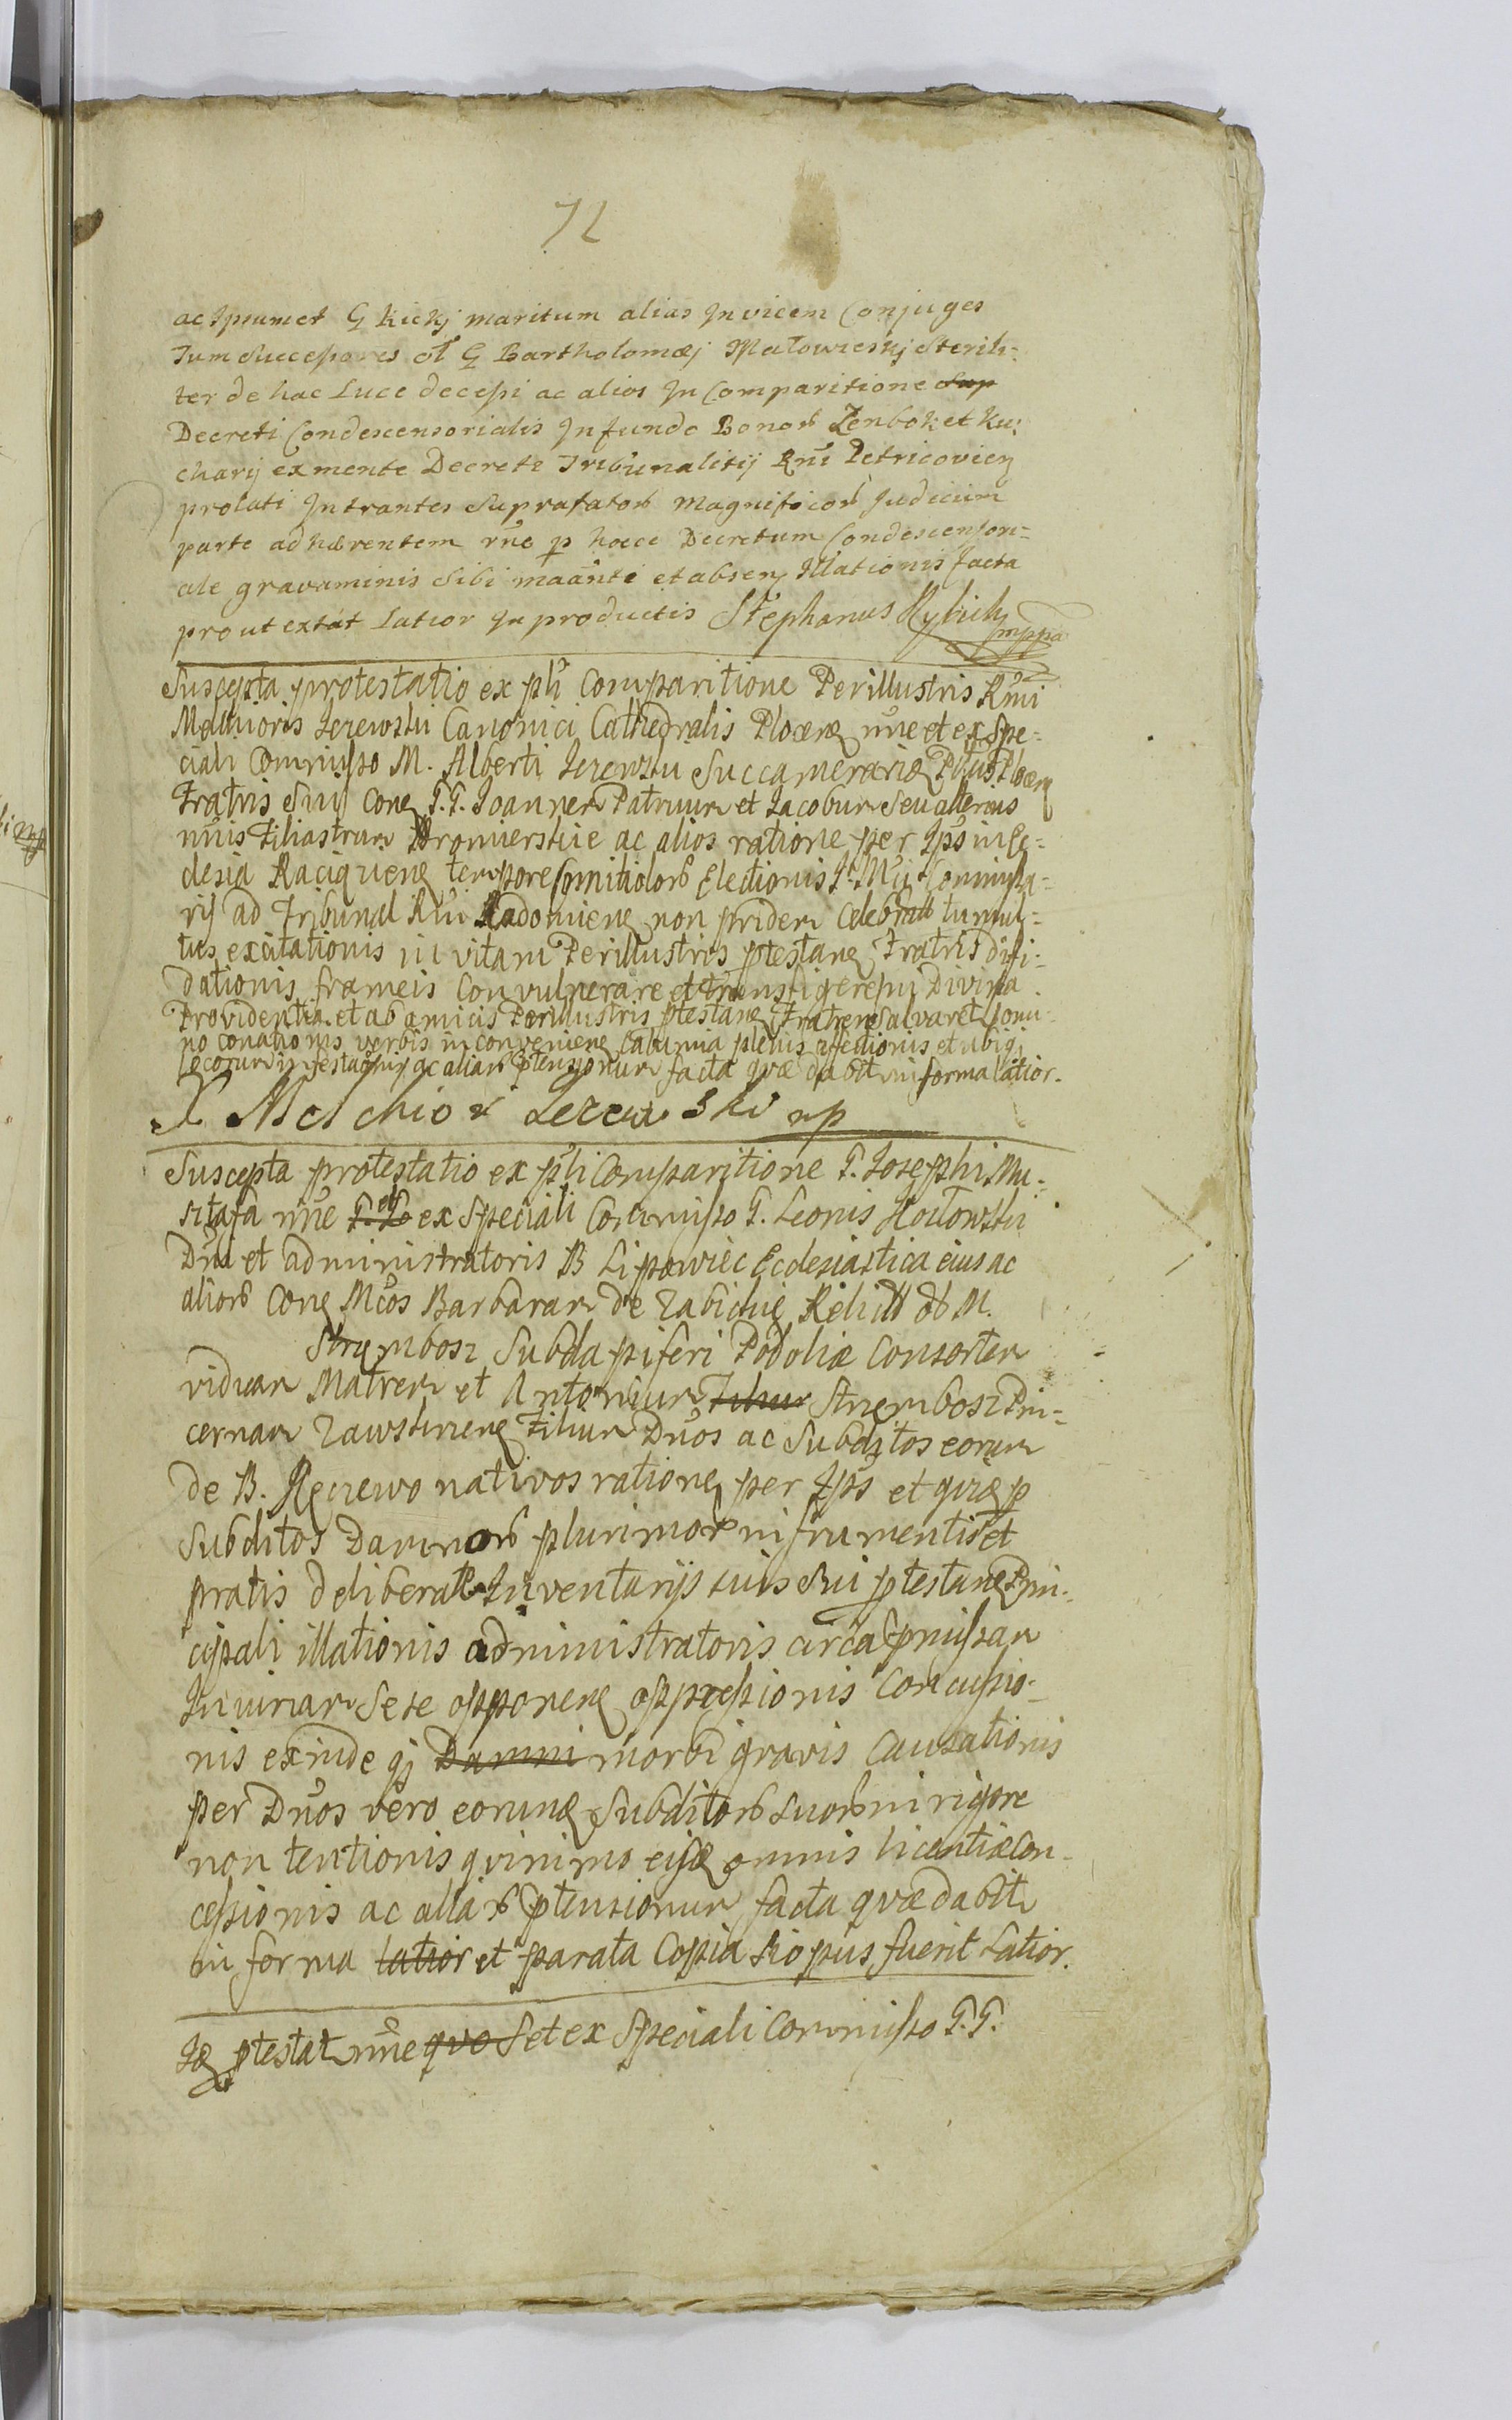 72
ac Ipsumet G Kickj maritum alias Invicem Conjuges
Tum Successores ol G Bartholomæj Małowieskj Sterili-
ter de hac Luce decessi ac alios In Comparitione Sup
Decreti Condescensorialis In fundo Bonor Zenbok et Ku:
charij ex mente Decreti Tribunalitij Rni Petricovien
prolati Intrantes Suprafator Magnificor Judicium
parte adhærentem rne p hocce Decretum Condescensori=
ale gravaminis Sibi maanti et absen Illationis facta
prout extat Latior In productis Stephanus Rybick mppa
Suscepta protestatio ex pli Comparitione Perillustris Rmi
Melchioris Jezewski Canonici Cathedralis Plocen nne et ex Spe-
ciali Commisso M. Alberti Jezewski Succamerariæ Pttus Plocen
Fratris Sui Con G.G. Joannem Patruum et Jacobum Seu alterius
nnis Filiastrum Kromierskie ac alios ratione per Ips in Ec-
clesia Raciązen tempore Comitiolor Electionis J. Mci Commissa-
rij ad Tribunal Rni Radomien non pridem Celebratt tumul-
tus excitationis in vitam Perillustris ptestan Fratris diffi-
dationis frameis Convulnerare et transfigere ni Divina
Providentia et ab amicis Perillustris ptestan Fratrem Salvaret omni-
no conationis verbis inconvenien Calumnia plenis affectionis et ubiq
Locorum infestationis ac aliar ptensionum facta qvæ dabit in forma latior.
X Melchior Jezewski mp
Suscepta protestatio ex pli Comparitione G. Josephi Mu-
sztafa nne G. L et ex Speciali Commisso G. Leonis Kozłowski
Dni et administratoris B Lipowiec Ecclesiastica eius ac
alior Con Mcos Barbaram de Zabickie Relicttt ol M.
Strembosz Subdapiferi Podoliæ Consortem
viduam Matrem et Antonium Filium Strembosz Pin-
cernam Zawskrzen Filium Dnos ac Subditos eorum
de B. Kęczewo nativos ratione per Ips et qvæ p
Subditos Damnor plurimor in frumentis et
pratis deliberatt Inventarijs suis Sui ptestan Prin-
cipali illationis administratoris circa pmissam
Iniuriam Sese opponen oppressionis Concussio-
nis exinde q Damni morbi gravis Causationis
per Dnos vero eorund Subditor Suor in rigore
non tentionis qvinimo eisd omnis licentiæ Con-
cessionis ac aliar ptensionum facta qvæ dabit
in forma latior et parata Copia Si opus fuerit Latior.
Id ptestat nne qvo S et ex Speciali Commisso G.G.